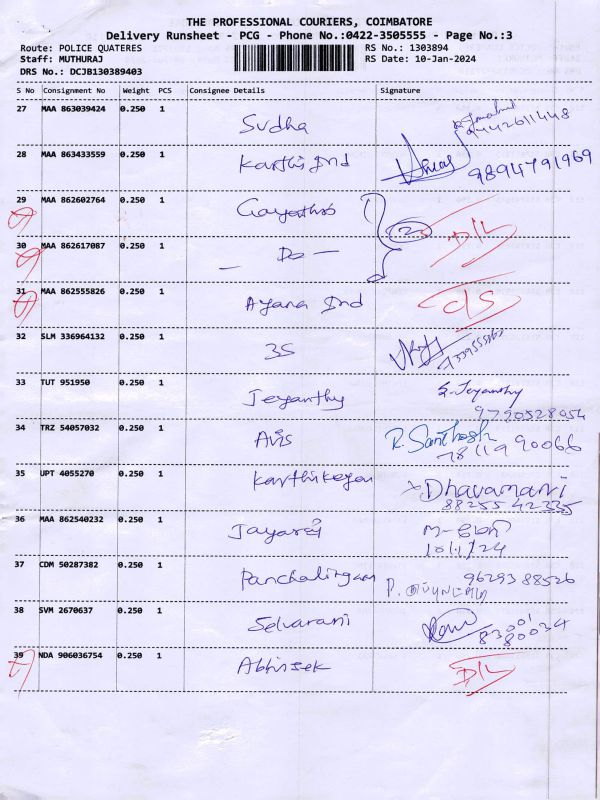 THE PROFESSIONAL COURIERS, COIMBATORE
Delivery Runsheet - PCG - Phone No.:0422-3505555 - Page No.:3
Route: POLICE QUATERES RS No.: 1303894
Staff: MUTHURAJ RS Date: 10-Jan-2024
DRS No.: DCJB130389403
S No Consignment No Weight PCS Consignee Details Signature
27 MAA 863039424 0.250 1 Sudha
9442611448
28 MAA 863433559 0.250 1 Karthi Ind
9894791969
29 MAA 862602764 0.250 1 Gayathri 2 D/L
30 MAA 862617087 0.250 1 — Do —
31 MAA 862555826 0.250 1 Ayana Ind D/S
32 SLM 336964132 0.250 1 3S
33 TUT 951950 0.250 1 Jeyanthy S. Jeyanthy
9790528054
34 TRZ 54057032 0.250 1 Avis R. Santhosh
7811990066
35 UPT 4055270 0.250 1 Karthikeyan Dhavamani
8825542335
36 MAA 862540232 0.250 1 Jayarani
10/1/24
37 CDM 50287382 0.250 1 Panchalingam 9629388526
38 SVM 2670637 0.250 1 Selvarani
83001
80034
39 NDA 906036754 0.250 1 Abhisek D/L